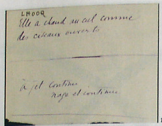 LHOOQ
Elle a chaud au cul comme
des ciseaux ouverts
à jet continu